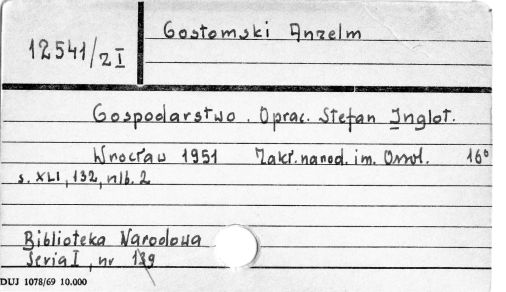 Gostomski Anzelm
12541/2 I
Gospodarstwo. Oprac. Stefan Inglot.
Wrocław 1951 Zakł. narod. im. Ossol. 16°
s. XLI, 132, nlb. 2
Biblioteka Narodowa
Seria I, nr 139
DUJ 1078/69 10.000